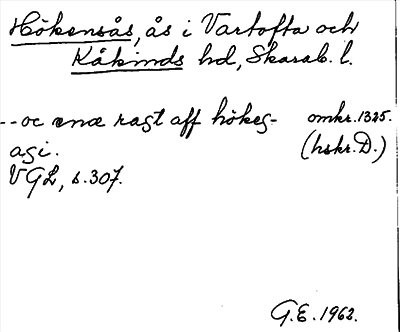 Hökensås, ås i Vartofta och
Kåkinds hd, Skarab. l.
--oc ena ragt aff hökeg- omkr. 1325.
asi. (hskr. D.)
VGL, s. 307.
G.E. 1962.